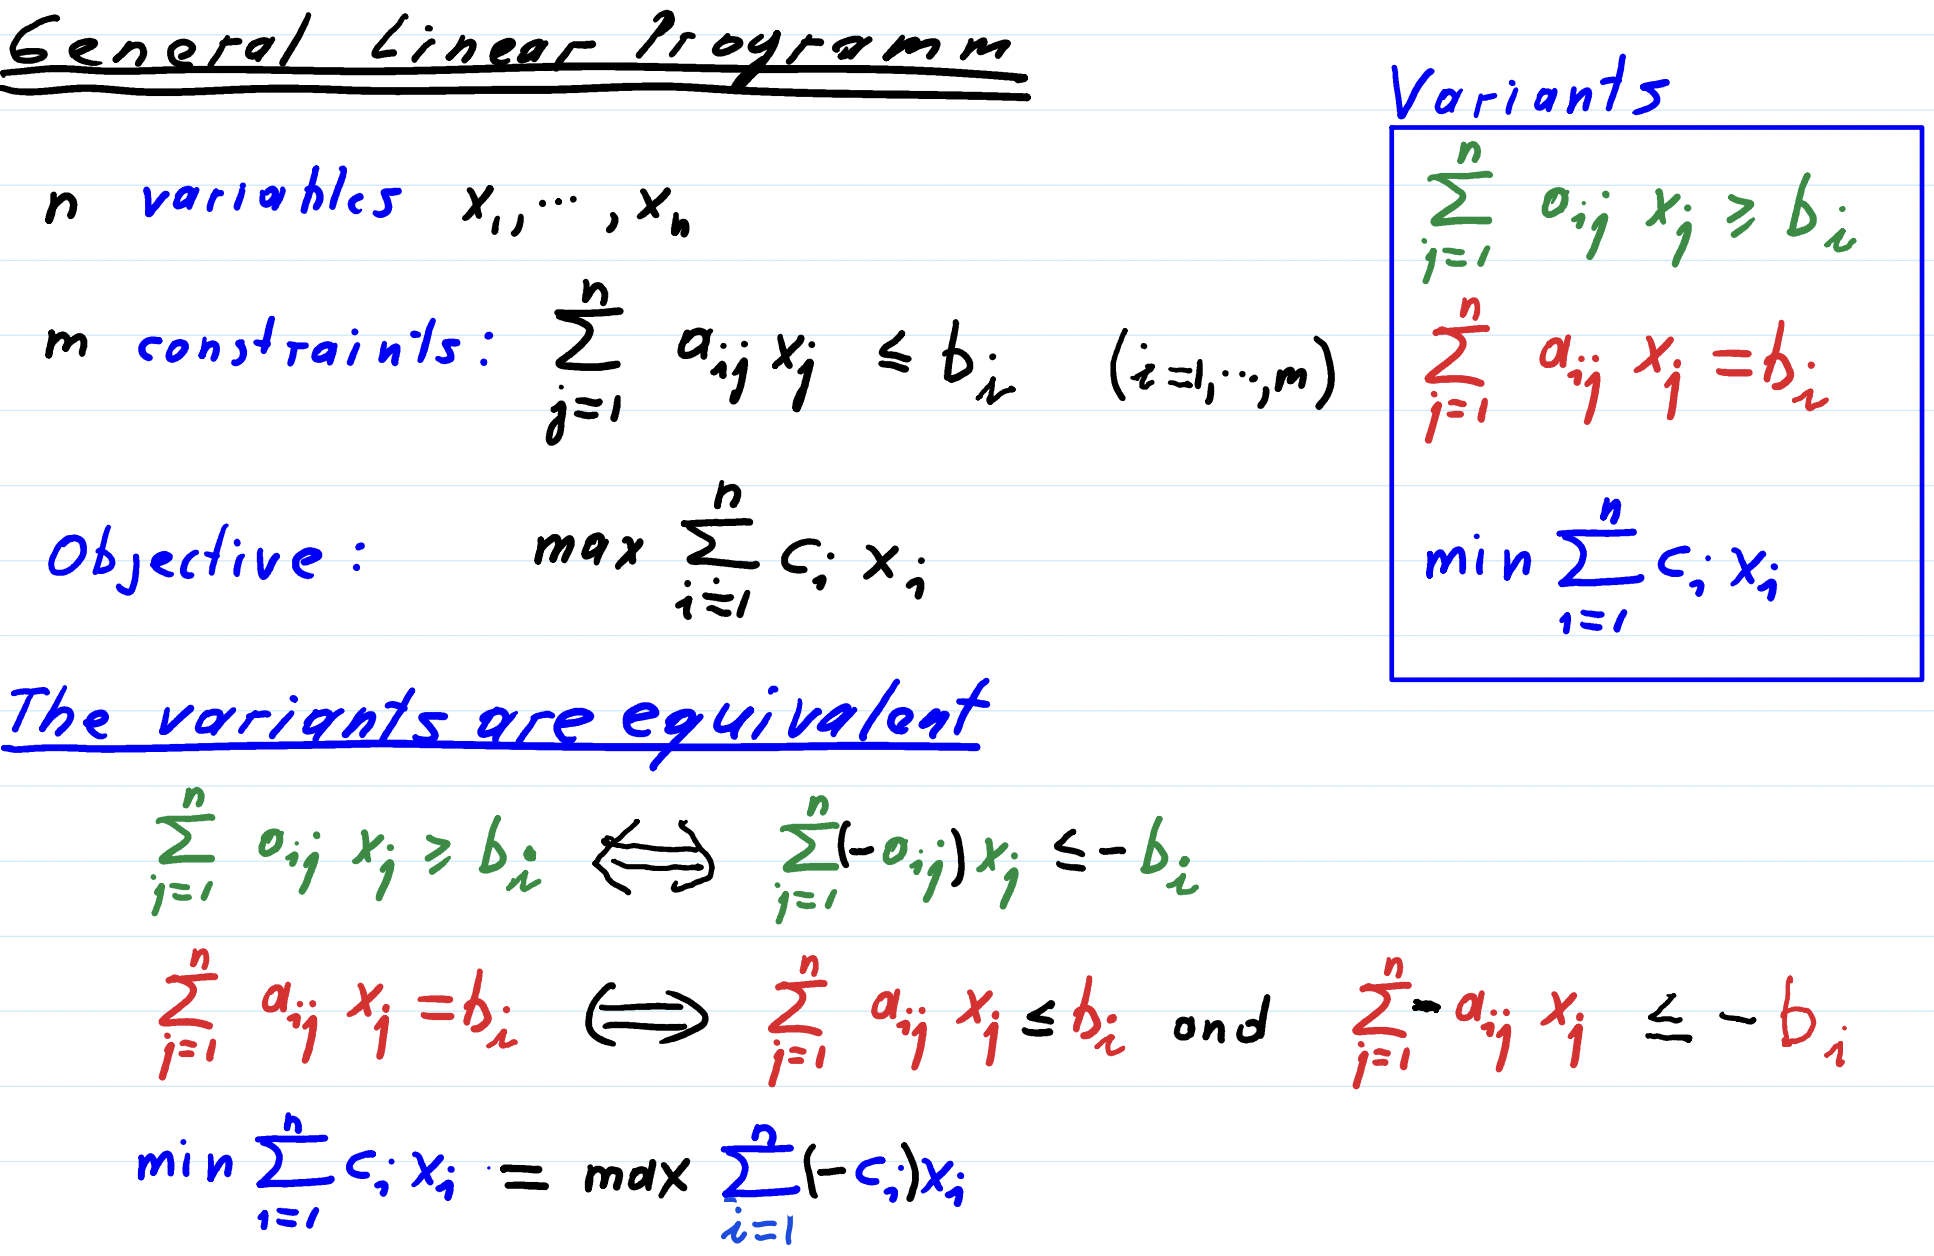 General Linear Programm
n variables x₁, ⋯, xₙ
m constraints: ∑_{j=1}^{n} a_{ij} x_j ≤ b_i (i=1,⋯,m)
Objective: max ∑_{i=1}^{n} c_i x_i
Variants
∑_{j=1}^{n} a_{ij} x_j ≥ b_i
∑_{j=1}^{n} a_{ij} x_j = b_i
min ∑_{i=1}^{n} c_i x_i
The variants are equivalent
∑_{j=1}^{n} a_{ij} x_j ≥ b_i ⟺ ∑_{j=1}^{n} (-a_{ij}) x_j ≤ -b_i
∑_{j=1}^{n} a_{ij} x_j = b_i ⟺ ∑_{j=1}^{n} a_{ij} x_j ≤ b_i and ∑_{j=1}^{n} -a_{ij} x_j ≤ -b_i
min ∑_{i=1}^{n} c_i x_i = max ∑_{i=1}^{n} (-c_i) x_i